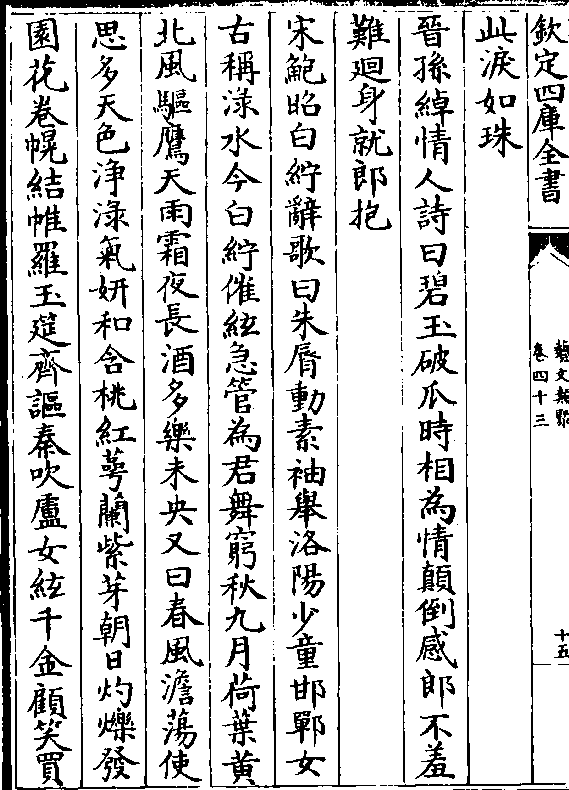 欽定四庫全書
藝文類聚
卷四十三
十五
此淚如珠
晉孫綽情人詩曰碧玉破瓜時相為情顛倒感郎不羞
難廻身就郎抱
宋鮑昭白紵辭歌曰朱脣動素袖舉洛陽少童邯鄲女
古稱渌水今白紵催絃急管為君舞窮秋九月荷葉黃
北風驅鷹天雨霜夜長酒多樂未央又曰春風澹蕩使
思多天色浄渌氣妍和含桃紅萼蘭紫芽朝日灼爍發
園花卷幌結帷羅玉筵齊謳秦吹盧女絃千金顧笑買